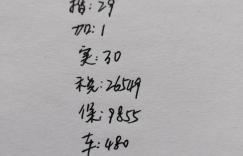 指:29
加:1
实:30
税:26549
保:9855
车:480